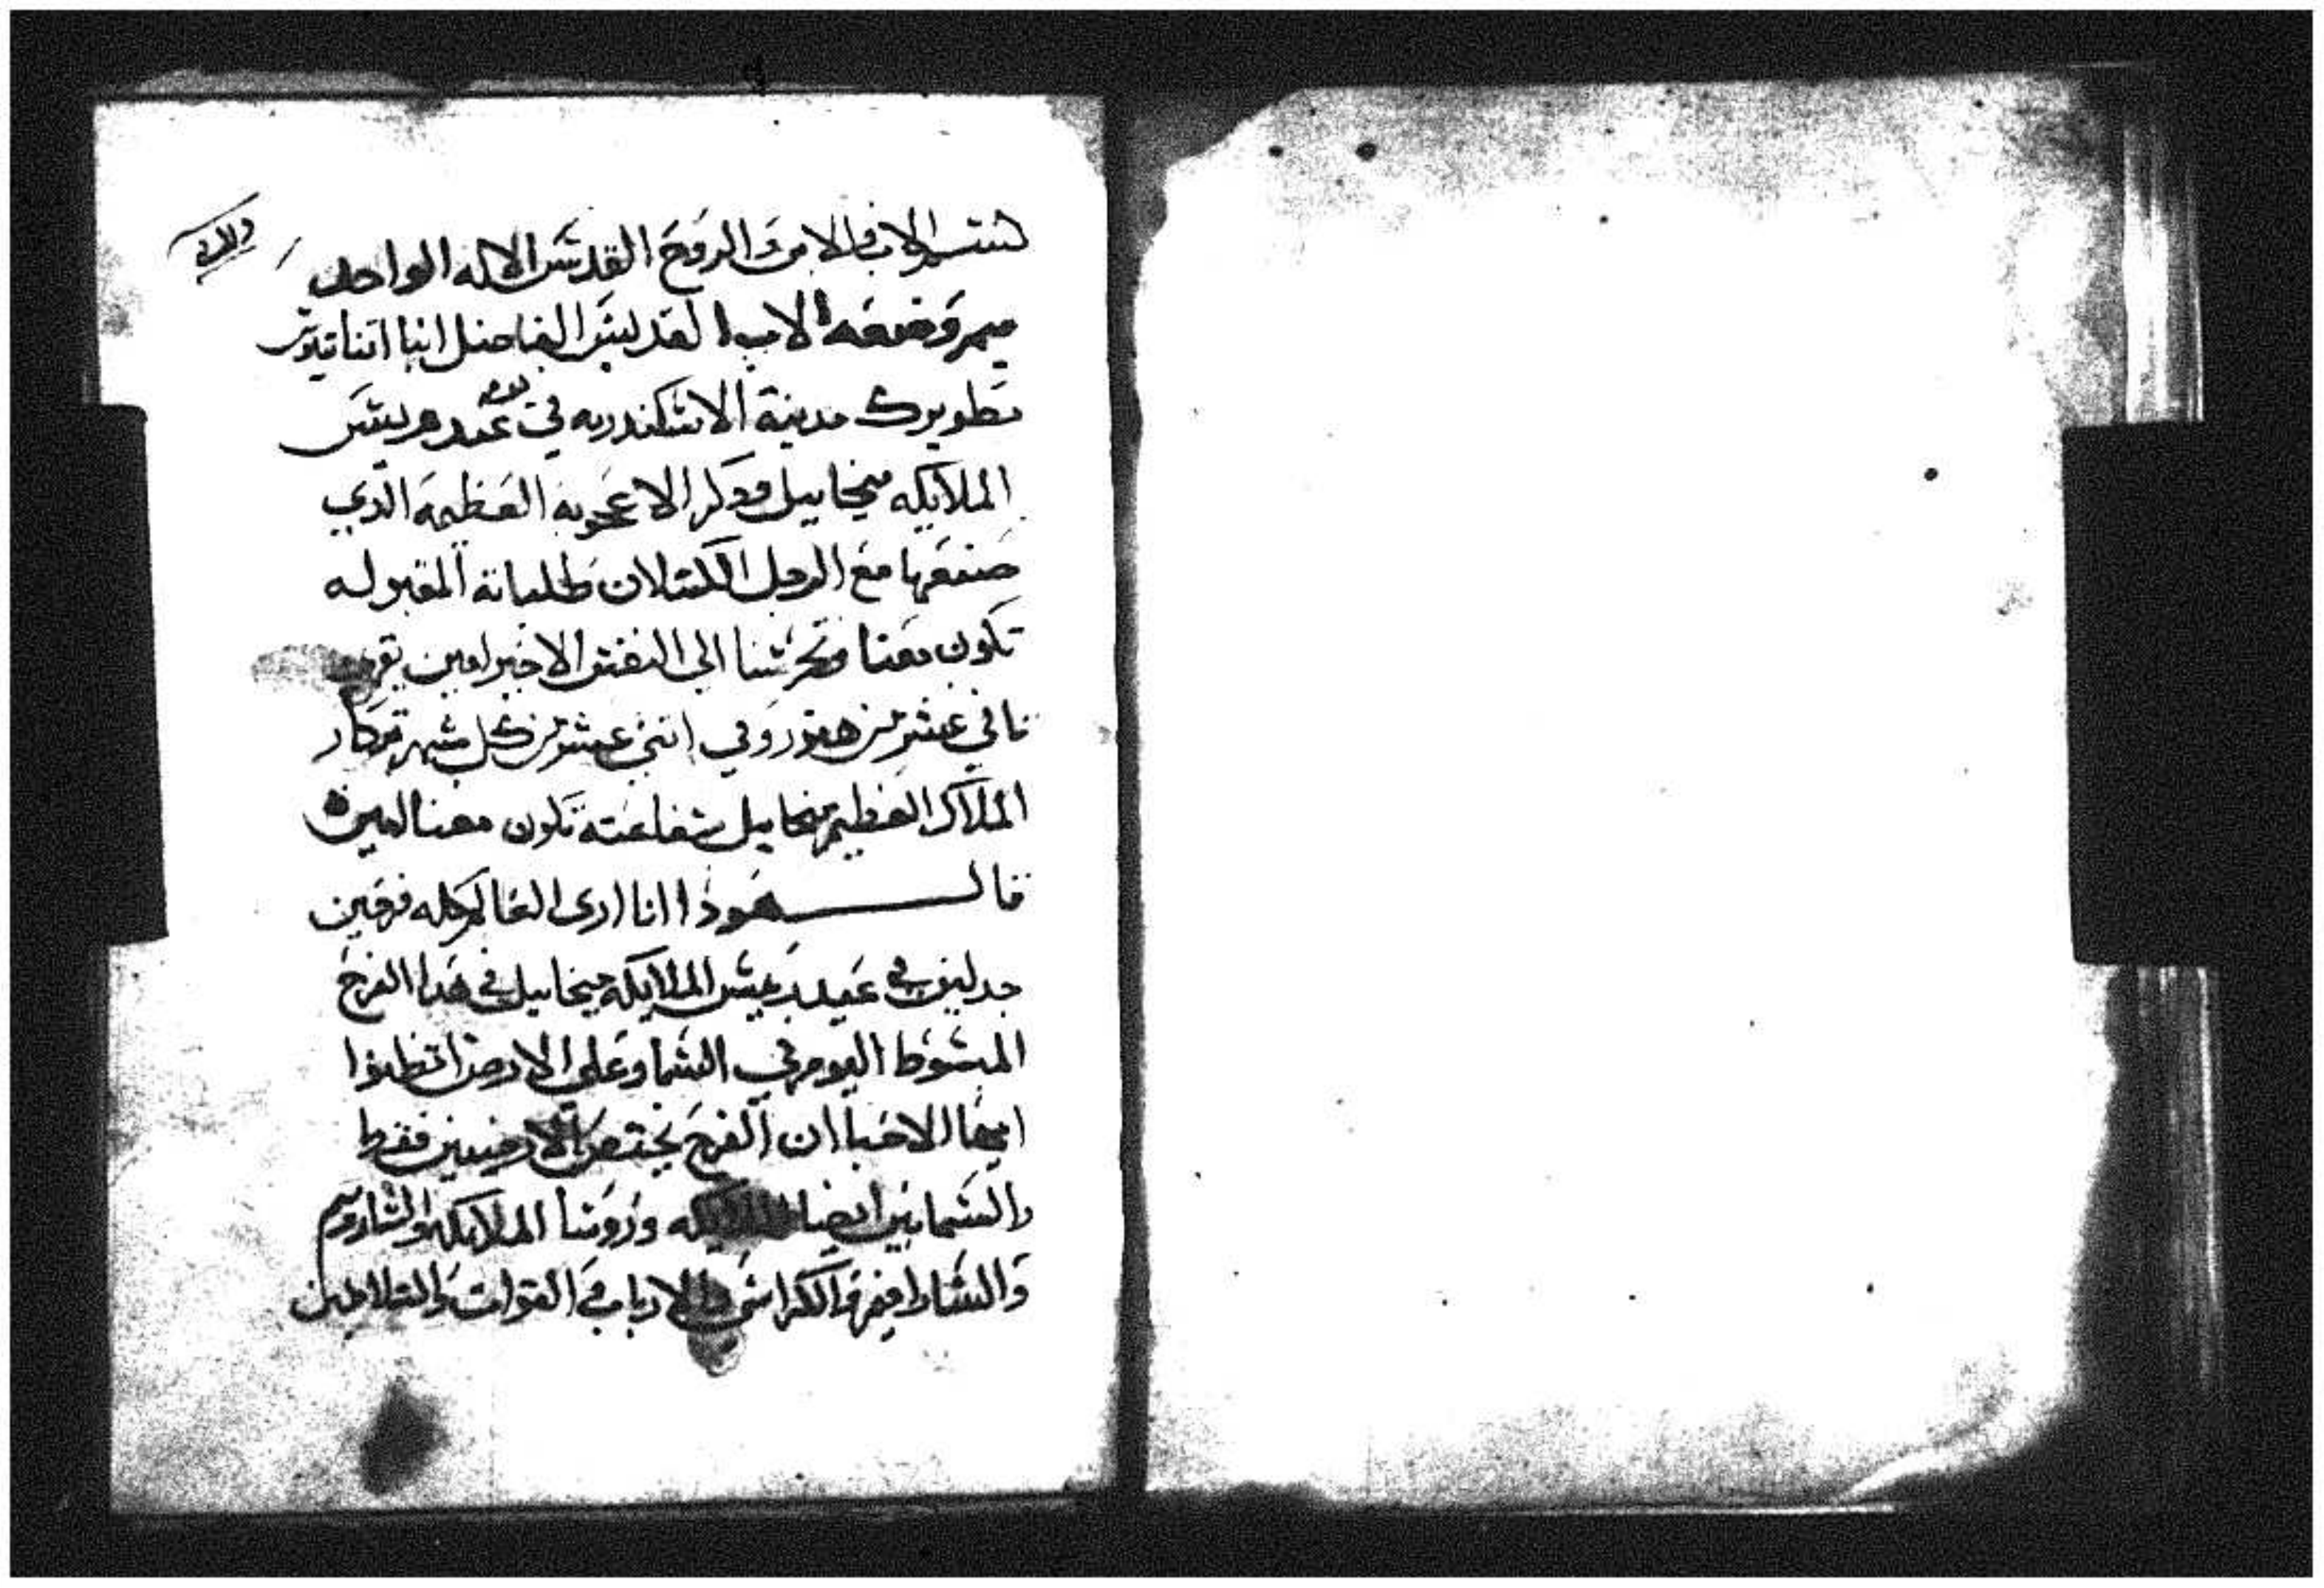 بسم الاب والابن والروح القدس الاله الواحد
ميمر وضعه الاب القديس الفاضل انبا اتناتيوس
بطريرك مدينة الاسكندريه في يوم عيد ريس
الملايكه ميخاييل ودكر الاعجوبه العظيمه الدي
صنعها مع الرجل الكسلان طلباته المقبوله
تكون معنا وتحرسنا الي النفس الاخير امين يقري
تاني عشر من هتور وفي اتني عشر من كل شهر تدكار
الملاك العظيم ميخاييل شفاعته تكون معنا امين
قال هودا انا اري العالم كله فرحين
جدلين في عيد ريس الملايكه ميخاييل في هدا الفرح
المبسوط اليوم في السما وعلي الارض اتظنوا
ايها الاحبا ان الفرح يختص بالارضيين فقط
والسمايين ايضا الملايكه وروسا الملايكه والشاروبيم
والسارافيم والكراسي والارباب والقوات والسلاطين